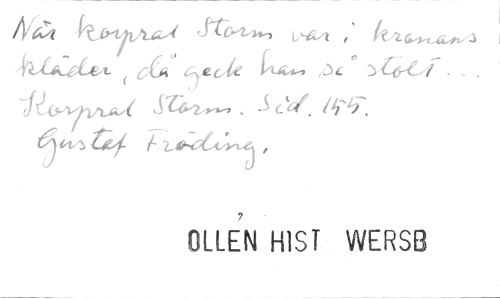 När korpral Storm var i kronans
kläder, då geck han så stolt...
Korpral Storm. Sid. 155.
Gustaf Fröding.
OLLÉN HIST WERSB